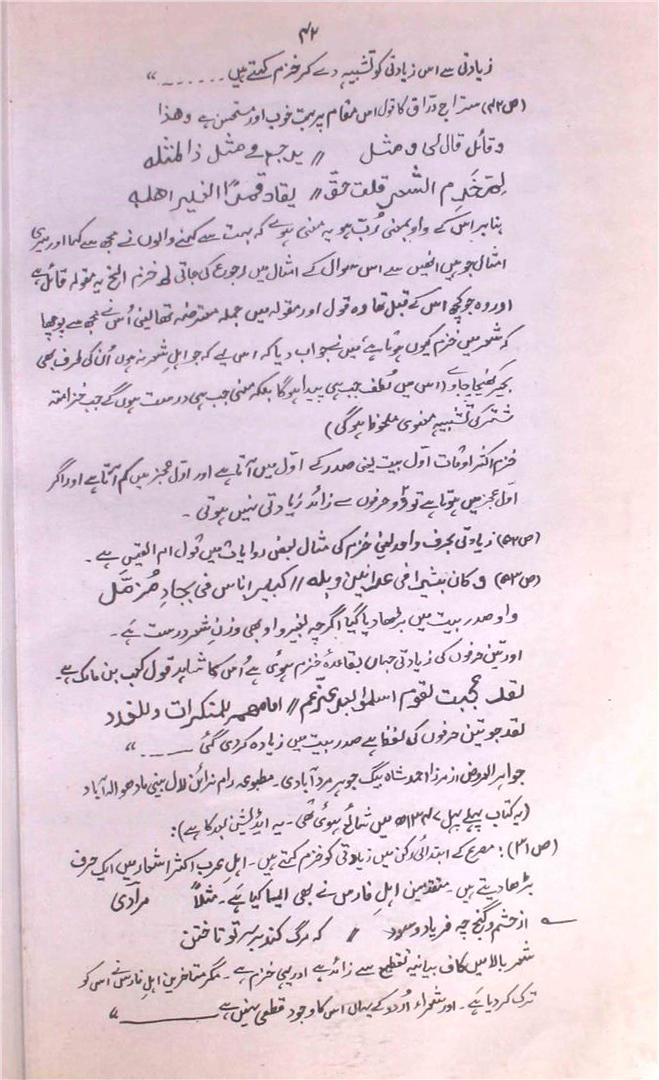 ۴۲
زیادتی سے اس زیادتی کو تشبیہ دے کر خزم کہتے ہیں ۔۔۔۔۔۔ “
(ص۴۲) سراج ورّاق کا قول اس مقام پر بہت خوب اور مستحسن ہے وھٰذا
وقائل قال لی ومثل // یرجع فی مثل ذا لمثلہ
لم خزم الشعر قلت حقّ // یقاد قسرًا الٰی غیر اھلہ
بنا بر اس کے واو بمعنی رُبّ ہو یہ معنی ہوئے کہ بہت سے کہنے والوں نے مجھ سے کہا اور میری
امثال جو ہیں انھیں سے اس سوال کے امثال میں رجوع کی جاتی لم خزم الخ یہ مقولہ قائل ہے
اور وہ جو کچھ اس کے قبل تھا وہ قول اور مقولہ میں جملہ معترضہ تھا یعنی اُس نے مجھ سے پوچھا
کہ شعر میں خزم کیوں ہوتا ہے، میں نے جواب دیا کہ اس لیے کہ جو اہلِ شعر نہ ہوں اُن کی طرف بھی
کھینچا جاوے (اس میں لطف جب ہی پیدا ہوگا بلکہ معنی جب ہی درست ہوں گے جب خزامتہ
شتر کی تشبیہ معنوی ملحوظ ہوگی)
خزم اکثر اوقات اوّل بیت یعنی صدر کے اوّل میں آتا ہے اور اوّل عجز میں کم آتا ہے اور اگر
اوّل عجز میں ہوتا ہے تو دو حرفوں سے زائد زیادتی نہیں ہوتی ۔
(ص۵۲) زیادتی بحرف واحد یعنی خزم کی مثال بعض روایات میں قول امرالقیس ہے ۔
(ص۵۳) وکان بثیرا فی عرانین وبلہ // کبیر اناس فی بجادِ مُزمّل
واو صدر بیت میں بڑھا دیا گیا اگرچہ بغیر واو بھی وزنِ شعر درست ہے ۔
اور تین حرفوں کی زیادتی جہاں بقاعدۂ خزم ہوئی ہے اُس کا شاہد قول کعب بن مالک ہے ۔
لقد عجبت لقوم اسلموا بعد عزّھم // امامھم للمنکرات وللغدد
لقد جو تین حرفوں کی لفظ ہے صدر بیت میں زیادہ کر دی گئی ۔۔۔۔ “
جواہر العروض از مرزا احمد شاہ بیگ جوہر مرادآبادی ۔ مطبوعہ رام نرائن لال بینی مادھو الہ آباد
(یہ کتاب پہلے پہل ۱۳۴۷ھ میں شائع ہوئی تھی ۔ یہ ایڈیشن بعد کا ہے) :
(ص۳۱) : مصرع کے ابتدائی رکن میں زیادتی کو خزم کہتے ہیں ۔ اہلِ عرب اکثر اشعار میں ایک حرف
بڑھا دیتے ہیں ۔ متقدمین اہلِ فارس نے بھی ایسا کیا ہے ۔ مثلاً مرآدی
از حشم و گنج چہ فریاد و سود // کہ مرگ کند بر سرِ تو تاختن
شعر بالا میں کاف بیانیہ تقطیع سے زائد ہے اور یہی خزم ہے ۔ مگر متاخرین اہلِ فارس نے اس کو
ترک کر دیا ہے ۔ اور شعراء اُردو کے یہاں اس کا وجود قطعی نہیں ہے ۔ “